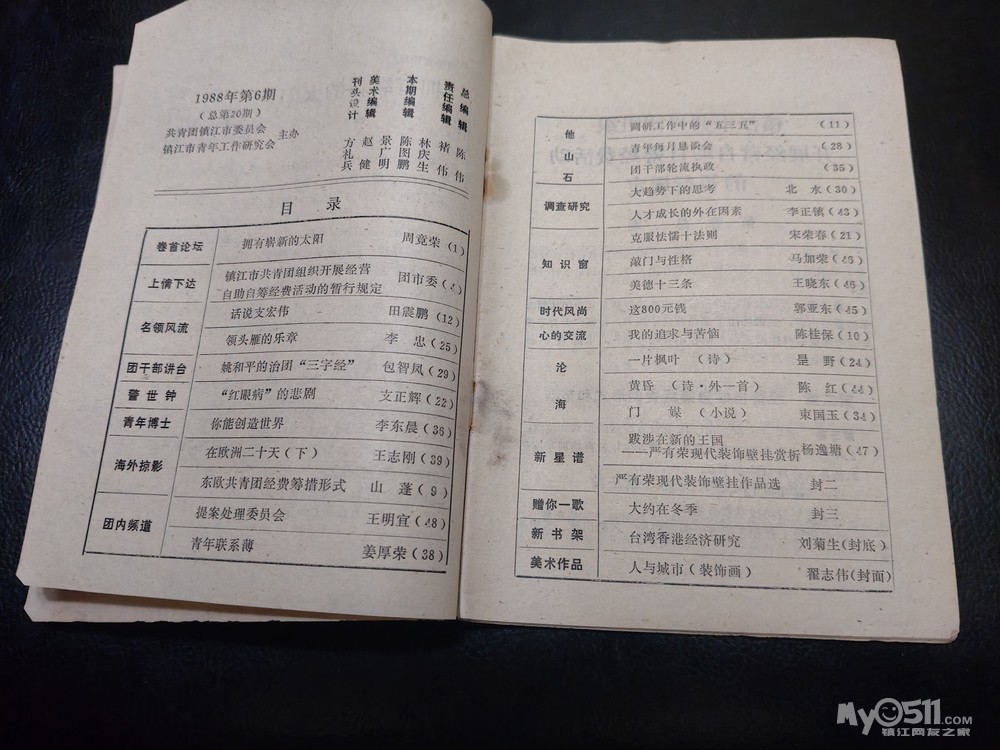 1988年第6期
（总第20期）
共青团镇江市委员会
镇江市青年工作研究会 主办
总编辑 陈伟
责任编辑 褚伟
林庆生
本期编辑 陈图鹏
景广明
美术编辑 赵健
刊头设计 方礼兵
目录
卷首论坛 拥有崭新的太阳 周竟荣（1）
上情下达 镇江市共青团组织开展经营
自助自筹经费活动的暂行规定 团市委（4）
名领风流 话说支宏伟 田震鹏（12）
领头雁的乐章 李忠（25）
团干部讲台 姚和平的治团“三字经” 包智凤（29）
警世钟 “红眼病”的悲剧 支正辉（22）
青年博士 你能创造世界 李东晨（36）
海外掠影 在欧洲二十天（下） 王志刚（39）
东欧共青团经费筹措形式 山蓬（9）
团内频道 提案处理委员会 王明宜（48）
青年联系薄 姜厚荣（38）
他山石 调研工作中的“五三五”（11）
青年每月恳谈会（28）
团干部轮流执政（35）
调查研究 大趋势下的思考 北水（30）
人才成长的外在因素 李正镇（43）
知识窗 克服怯懦十法则 宋荣春（21）
敲门与性格 马加荣（46）
美德十三条 王晓东（46）
时代风尚 这800元钱 郭亚东（45）
心的交流 我的追求与苦恼 陈桂保（10）
沧海 一片枫叶（诗） 野（24）
黄昏（诗·外一首） 陈红（44）
门媒（小说） 束国玉（34）
新星谱 跋涉在新的王国
——严有荣现代装饰壁挂赏析 杨逸塘（47）
严有荣现代装饰壁挂作品选 封二
赠你一歌 大约在冬季 封三
新书架 台湾香港经济研究 刘菊生（封底）
美术作品 人与城市（装饰画） 翟志伟（封面）
My0511.com
镇江网友之家